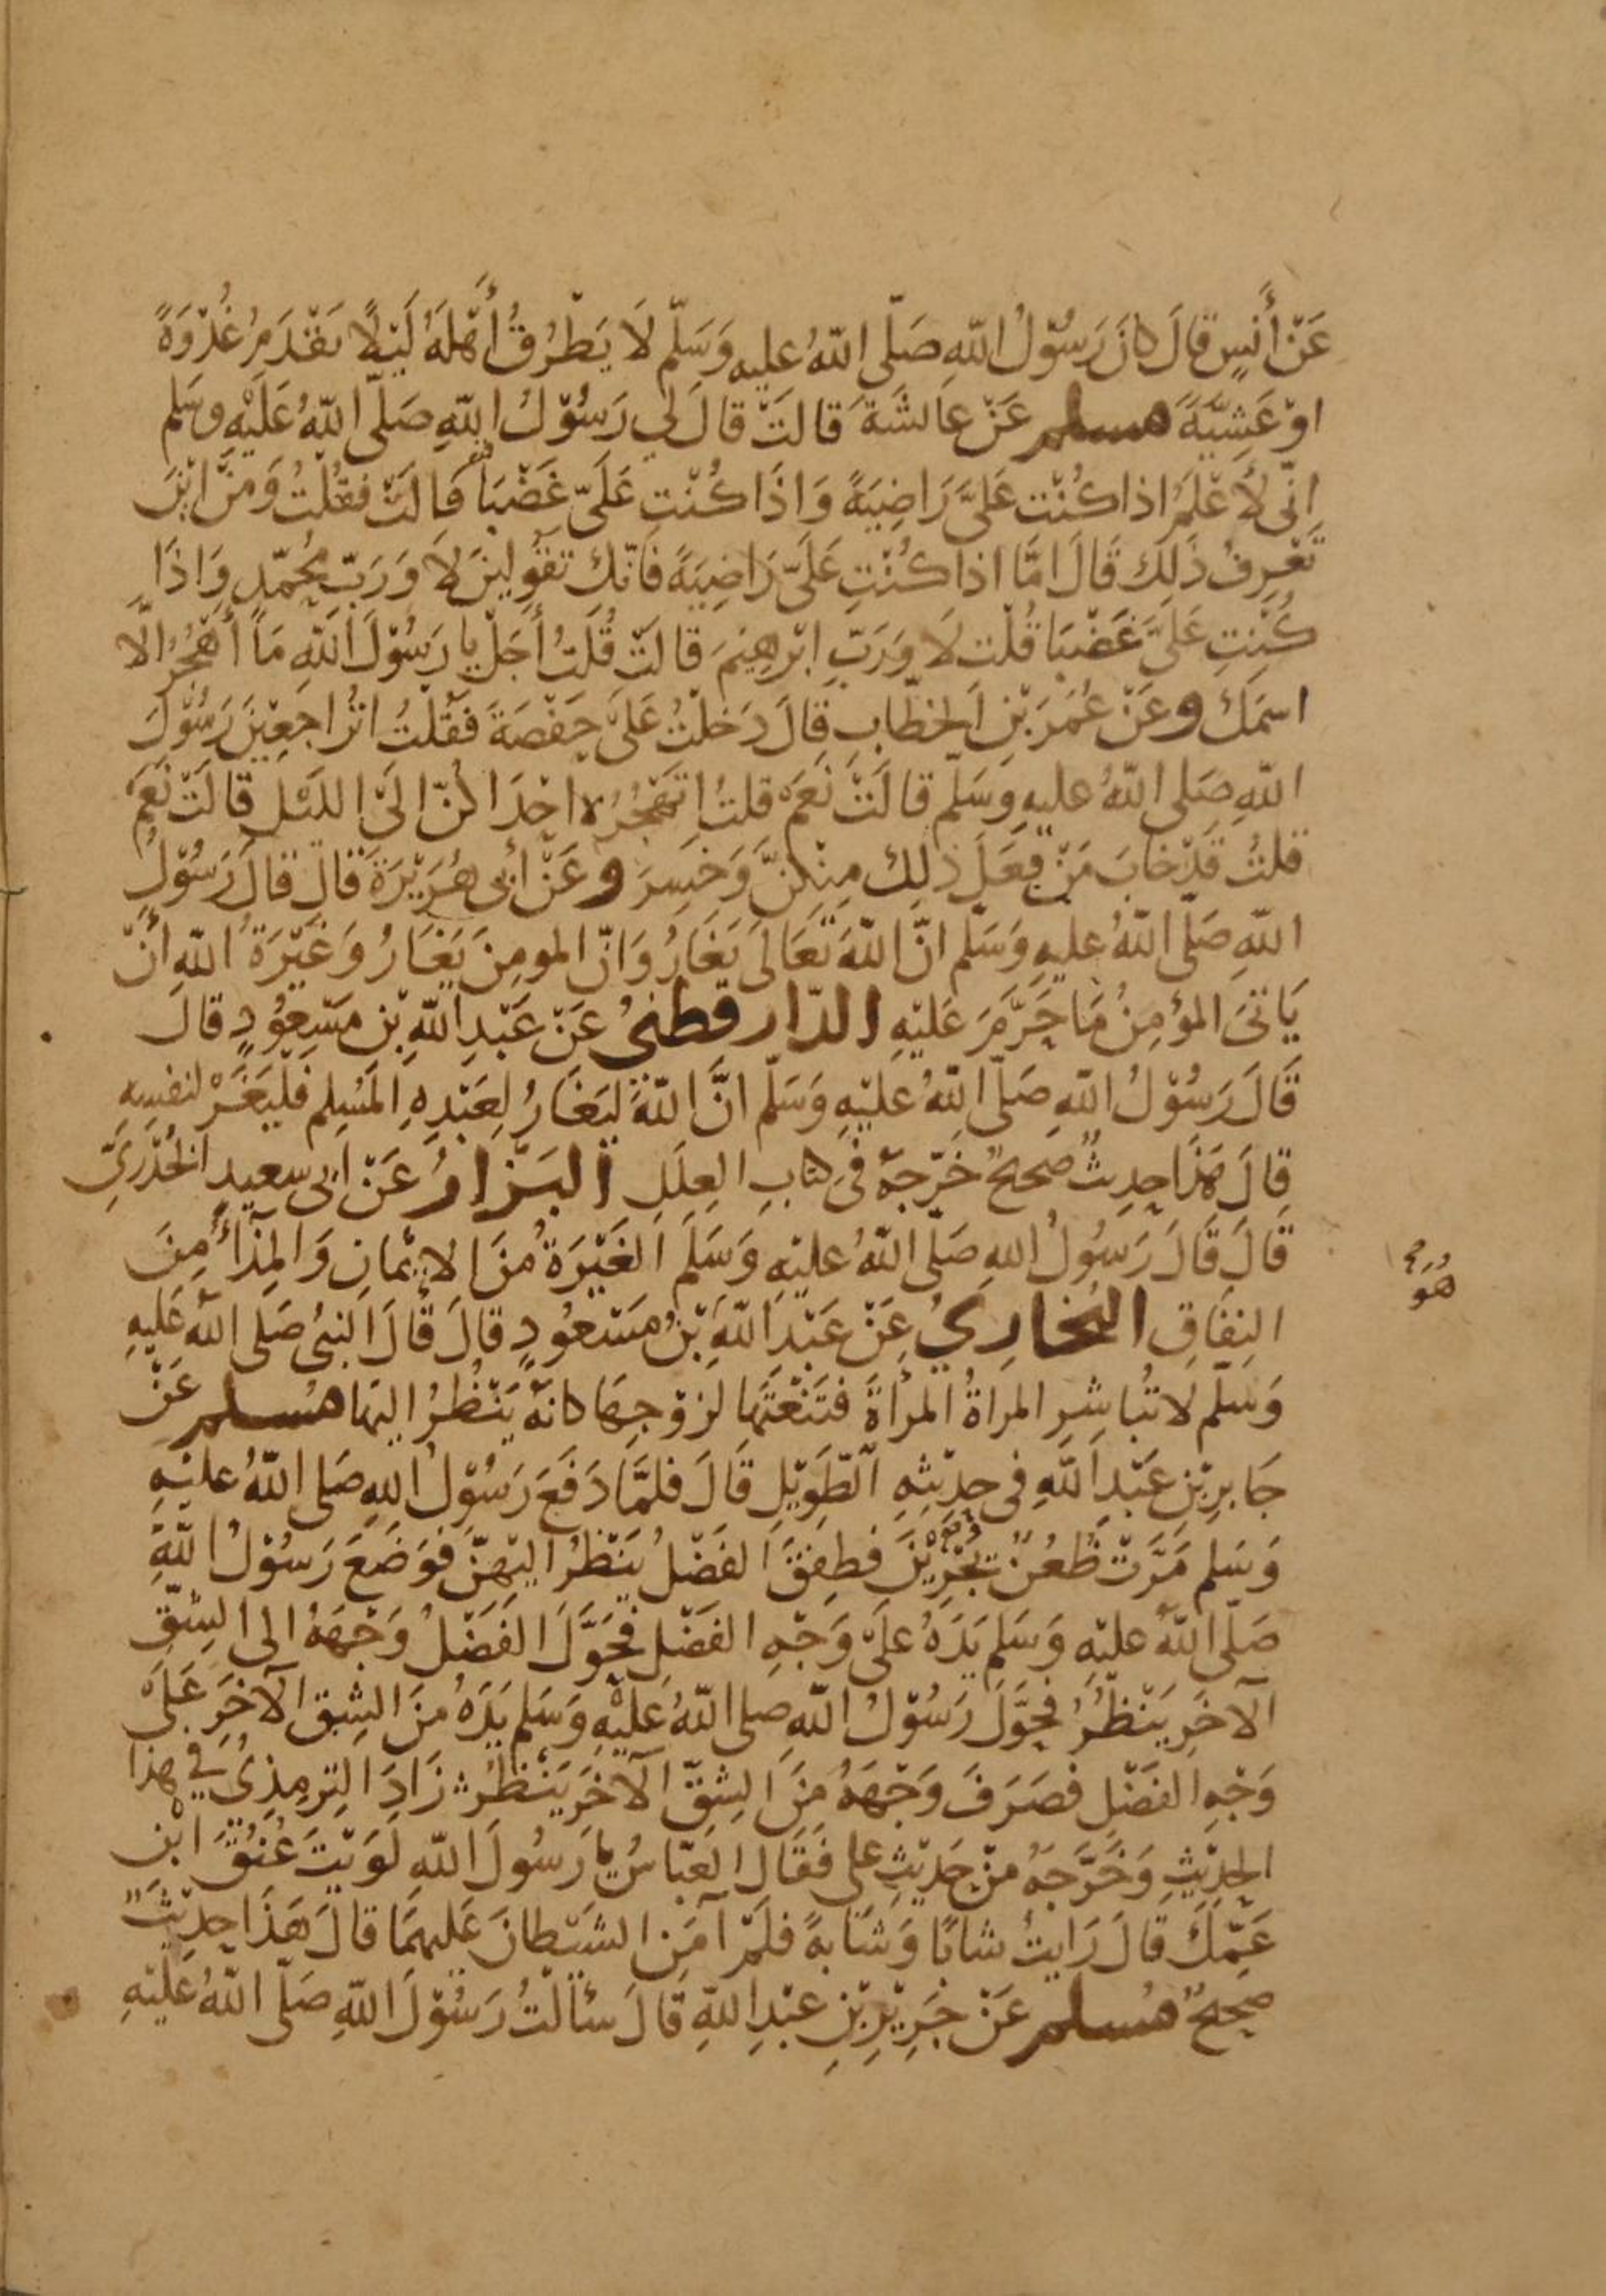 عَنْ أَنَسٍ قَالَ كانَ رَسُوْلُ اللّهِ صَلّى اللّهُ عليه وَسَلّم لَا يَطْرُقُ أَهْلَهُ لَيْلًا يَقْدَمُ غُدْوَةً
اوْ عَشِيَّةً مسلم عَنْ عَائشَةَ قَالَتْ قالَ لي رَسُوْلُ اللّهِ صَلّى اللّهُ عَلَيْهِ وسَلم
انّى لأَعْلَمُ اذا كُنْتِ عَلَىَّ رَاضِيَةً وَاذَا كُنْتِ عَلَىّ غَضْبَا قَالَتْ فقُلْتُ وَمِنْ ايْنَ
تَعْرِفُ ذَلِكَ قَالَ امَّا اذا كُنْتِ عَلَىّ رَاضِيَةً فَانّكِ تقُولينَ لَا وَرَبّ مُحَمّدٍ وَاذَا
كُنْتِ عَلَىَّ غَضْبَا قُلْتِ لَا وَرَبّ ابْرهِيْمَ قَالَتْ قُلْتُ أَجَلْ يا رَسُوْلَ اللّهِ مَا أَهْجُرُ الّا
اسمَكَ وعَنْ عُمَرَ بْنِ الخطّابِ قَالَ دَخلْتُ عَلَى حَفْصَةَ فَقُلْتُ اتُرَاجعِيْنَ رَسُوْلَ
اللّهِ صَلى اللّهُ عليهِ وسَلّم قالَتْ نَعَمْ قلتُ اتَهْجُرُهُ احْدَاكُنّ الَى الليْل قالَتْ نَعَمْ
قلتُ قَدْ خابَ مَنْ فعَلَ ذلِكَ مِنْكُنَّ وَخَسِرَ وعَنْ أبى هُرَيْرَةَ قَالَ قالَ رَسُوْلُ
اللّهِ صَلّى اللّهُ عليهِ وَسَلّم انّ اللّهَ تَعَالَى يَغَارُ وَانّ المومِنَ يَغَارُ وَغَيْرَةُ اللّهِ أَنْ
يَاتىَ المؤمِنُ مَا حَرَّمَ عَليْهِ الدّارقطنىُ عَنْ عَبْدِ اللّهِ بْنِ مَسْعُوْدٍ قالَ
قَالَ رَسُوْلُ اللّهِ صَلّى اللّهُ عَليْهِ وَسَلّم انَّ اللّهَ لَيَغَارُ لِعَبْدِهِ المُسْلِم فَليَغَرْ لنفسِهِ
قالَ هَذَا حِديثٌ صَحيحٌ خَرّجهُ فى كتابِ العِلَلِ البَزّارُ عَنْ ابى سعِيدٍ الخُدْرِيّ
قَالَ قَالَ رَسُولُ اللهِ صَلّى اللّهُ عليْهِ وَسَلّمَ الغَيْرَةُ مِنَ الايْمَانِ وَالمِذَاءُ مِنَ
النِفَاقِ البُخارِيُ عَنْ عَبْدِ اللّهِ بْنِ مَسْعُودٍ قَالَ قَالَ النبىُ صَلى اللّهُ عَليهِ
وَسَلّم لا تُبَاشِرِ المراةُ المرأةَ فتَنْعَتَهَا لزوْجِهَا كانهُ يَنْظُرُ اليهَا مُسلم عَنْ
جَابرِ بْنِ عَبْدِ اللّهِ فى حدِيْثِهِ الطّوِيْلِ قَالَ فلمَّا دَفَعَ رَسُوْلُ اللهِ صَلى اللّهُ عليْهِ
وَسَلم مَرَّتْ ظُعُنٌ يَجْرِيْنَ فطفِقَ الفَضْلُ يَنْظُرُ اليْهِنّ فوَضَعَ رَسُوْلُ اللّهِ
صَلّى اللّهُ عليْهِ وَسَلم يَدَهُ علَى وَجْهِ الفَضْلِ فحَوَّلَ الفَضْلُ وَجْهَهُ الى الشِقّ
الآخَرِ يَنْظُرُ فحَوَّلَ رَسُوْلُ اللّهِ صلى اللّهُ عَليْهِ وَسَلم يَدَهُ مِنَ الشِقّ الآخَرِ عَلَى
وَجْهِ الفَضْلِ فصَرَفَ وَجْهَهُ مِنَ الشِقّ الآخَرِ يَنْظُرُ زَادَ التِرمِذِىُ فى هذا
الحدِيْثِ وَخَرَّجَهُ مِنْ حَدِيْثِ على فَقَالَ العَبّاسُ يَا رَسُولَ اللّهِ لَوَيْتَ عُنُقَ ابْنِ
عَمّكَ قَالَ رَايتُ شابًا وَشابةً فلَمْ آمَنِ الشَيْطانَ عَليهمَا قالَ هَذَا حدِيْثٌ
صحيحٌ مُسلم عَنْ جَرِيْرِ بْنِ عَبْدِ اللّهِ قَالَ سَأَلْتُ رَسُوْلَ اللّهِ صَلّى اللّهُ عَليْهِ